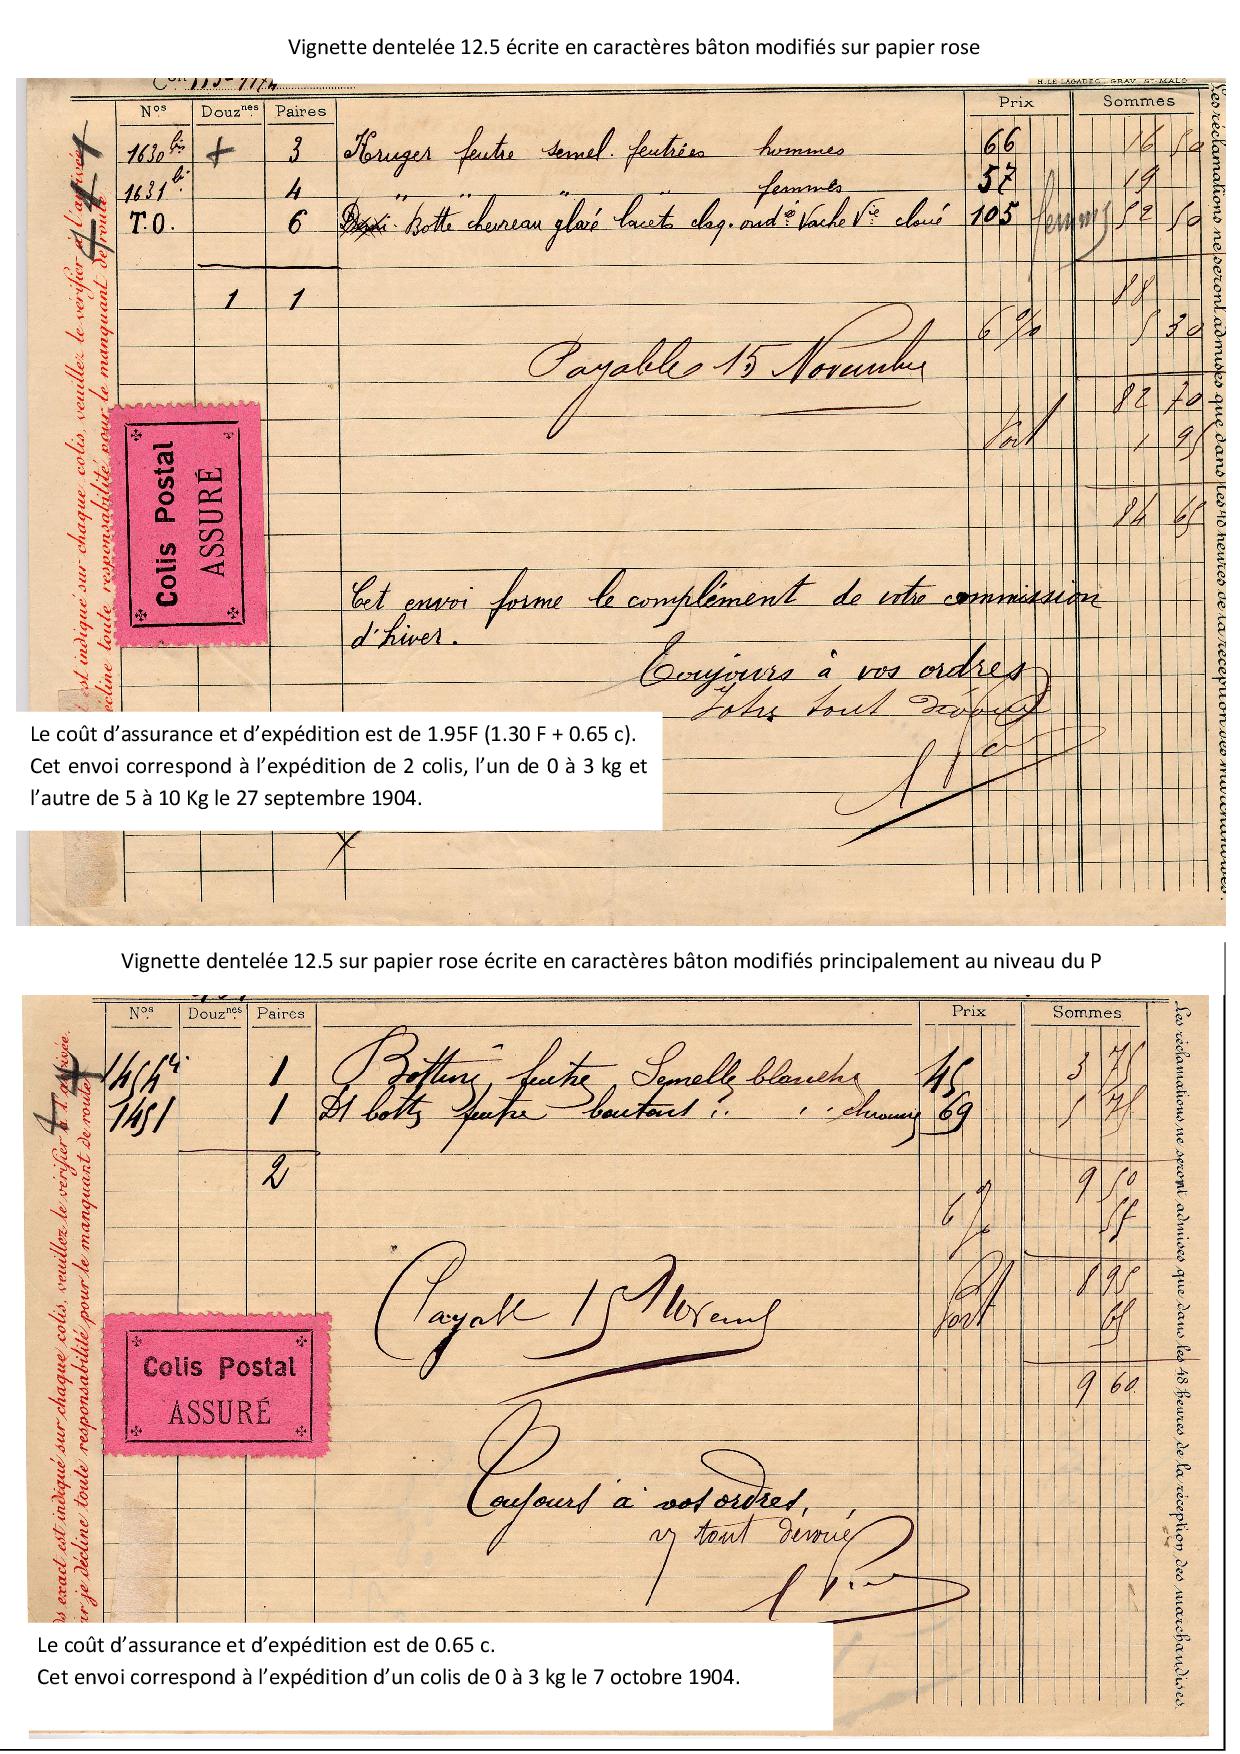 Vignette dentelée 12.5 écrite en caractères bâton modifiés sur papier rose
H. LE LAGADEC - GRAV. ST-MALO
Nos Douznes Paires Prix Sommes
1630 bis + 3 Kruger feutre semel. feutrées hommes 66 16 50
1631 b. 4 " " " " femmes 57 19
T.O. 6 Botte chevreau glacé lacets claq. ond.é Vache Vie cloué 105 femmes 52 50
1 1 88
6 % 5 30
Payable 15 Novembre
82 70
Port 1 95
84 65
Colis Postal
ASSURÉ
Cet envoi forme le complément de votre commission
d'hiver.
Toujours à vos ordres
Votre tout dévoué
est indiqué sur chaque colis, veuillez le vérifier à l'arrivée
écline toute responsabilité pour le manquant de route.
Les réclamations ne seront admises que dans les 48 heures de la réception des marchandises.
Le coût d'assurance et d'expédition est de 1.95F (1.30 F + 0.65 c).
Cet envoi correspond à l'expédition de 2 colis, l'un de 0 à 3 kg et
l'autre de 5 à 10 Kg le 27 septembre 1904.
Vignette dentelée 12.5 sur papier rose écrite en caractères bâton modifiés principalement au niveau du P
Nos Douznes Paires Prix Sommes
1 Bottine feutre Semelle blanche 45 3 75
1451 1 botte feutre boutons 69 5 75
2 9 50
6 % 55
Payable 15 Novemb
8 95
Port 65
9 60
Colis Postal
ASSURÉ
Toujours à vos ordres,
tout dévoué
ds exact est indiqué sur chaque colis, veuillez le vérifier à l'arrivée.
ur je décline toute responsabilité pour le manquant de route.
Les réclamations ne seront admises que dans les 48 heures de la réception des marchandises.
Le coût d'assurance et d'expédition est de 0.65 c.
Cet envoi correspond à l'expédition d'un colis de 0 à 3 kg le 7 octobre 1904.